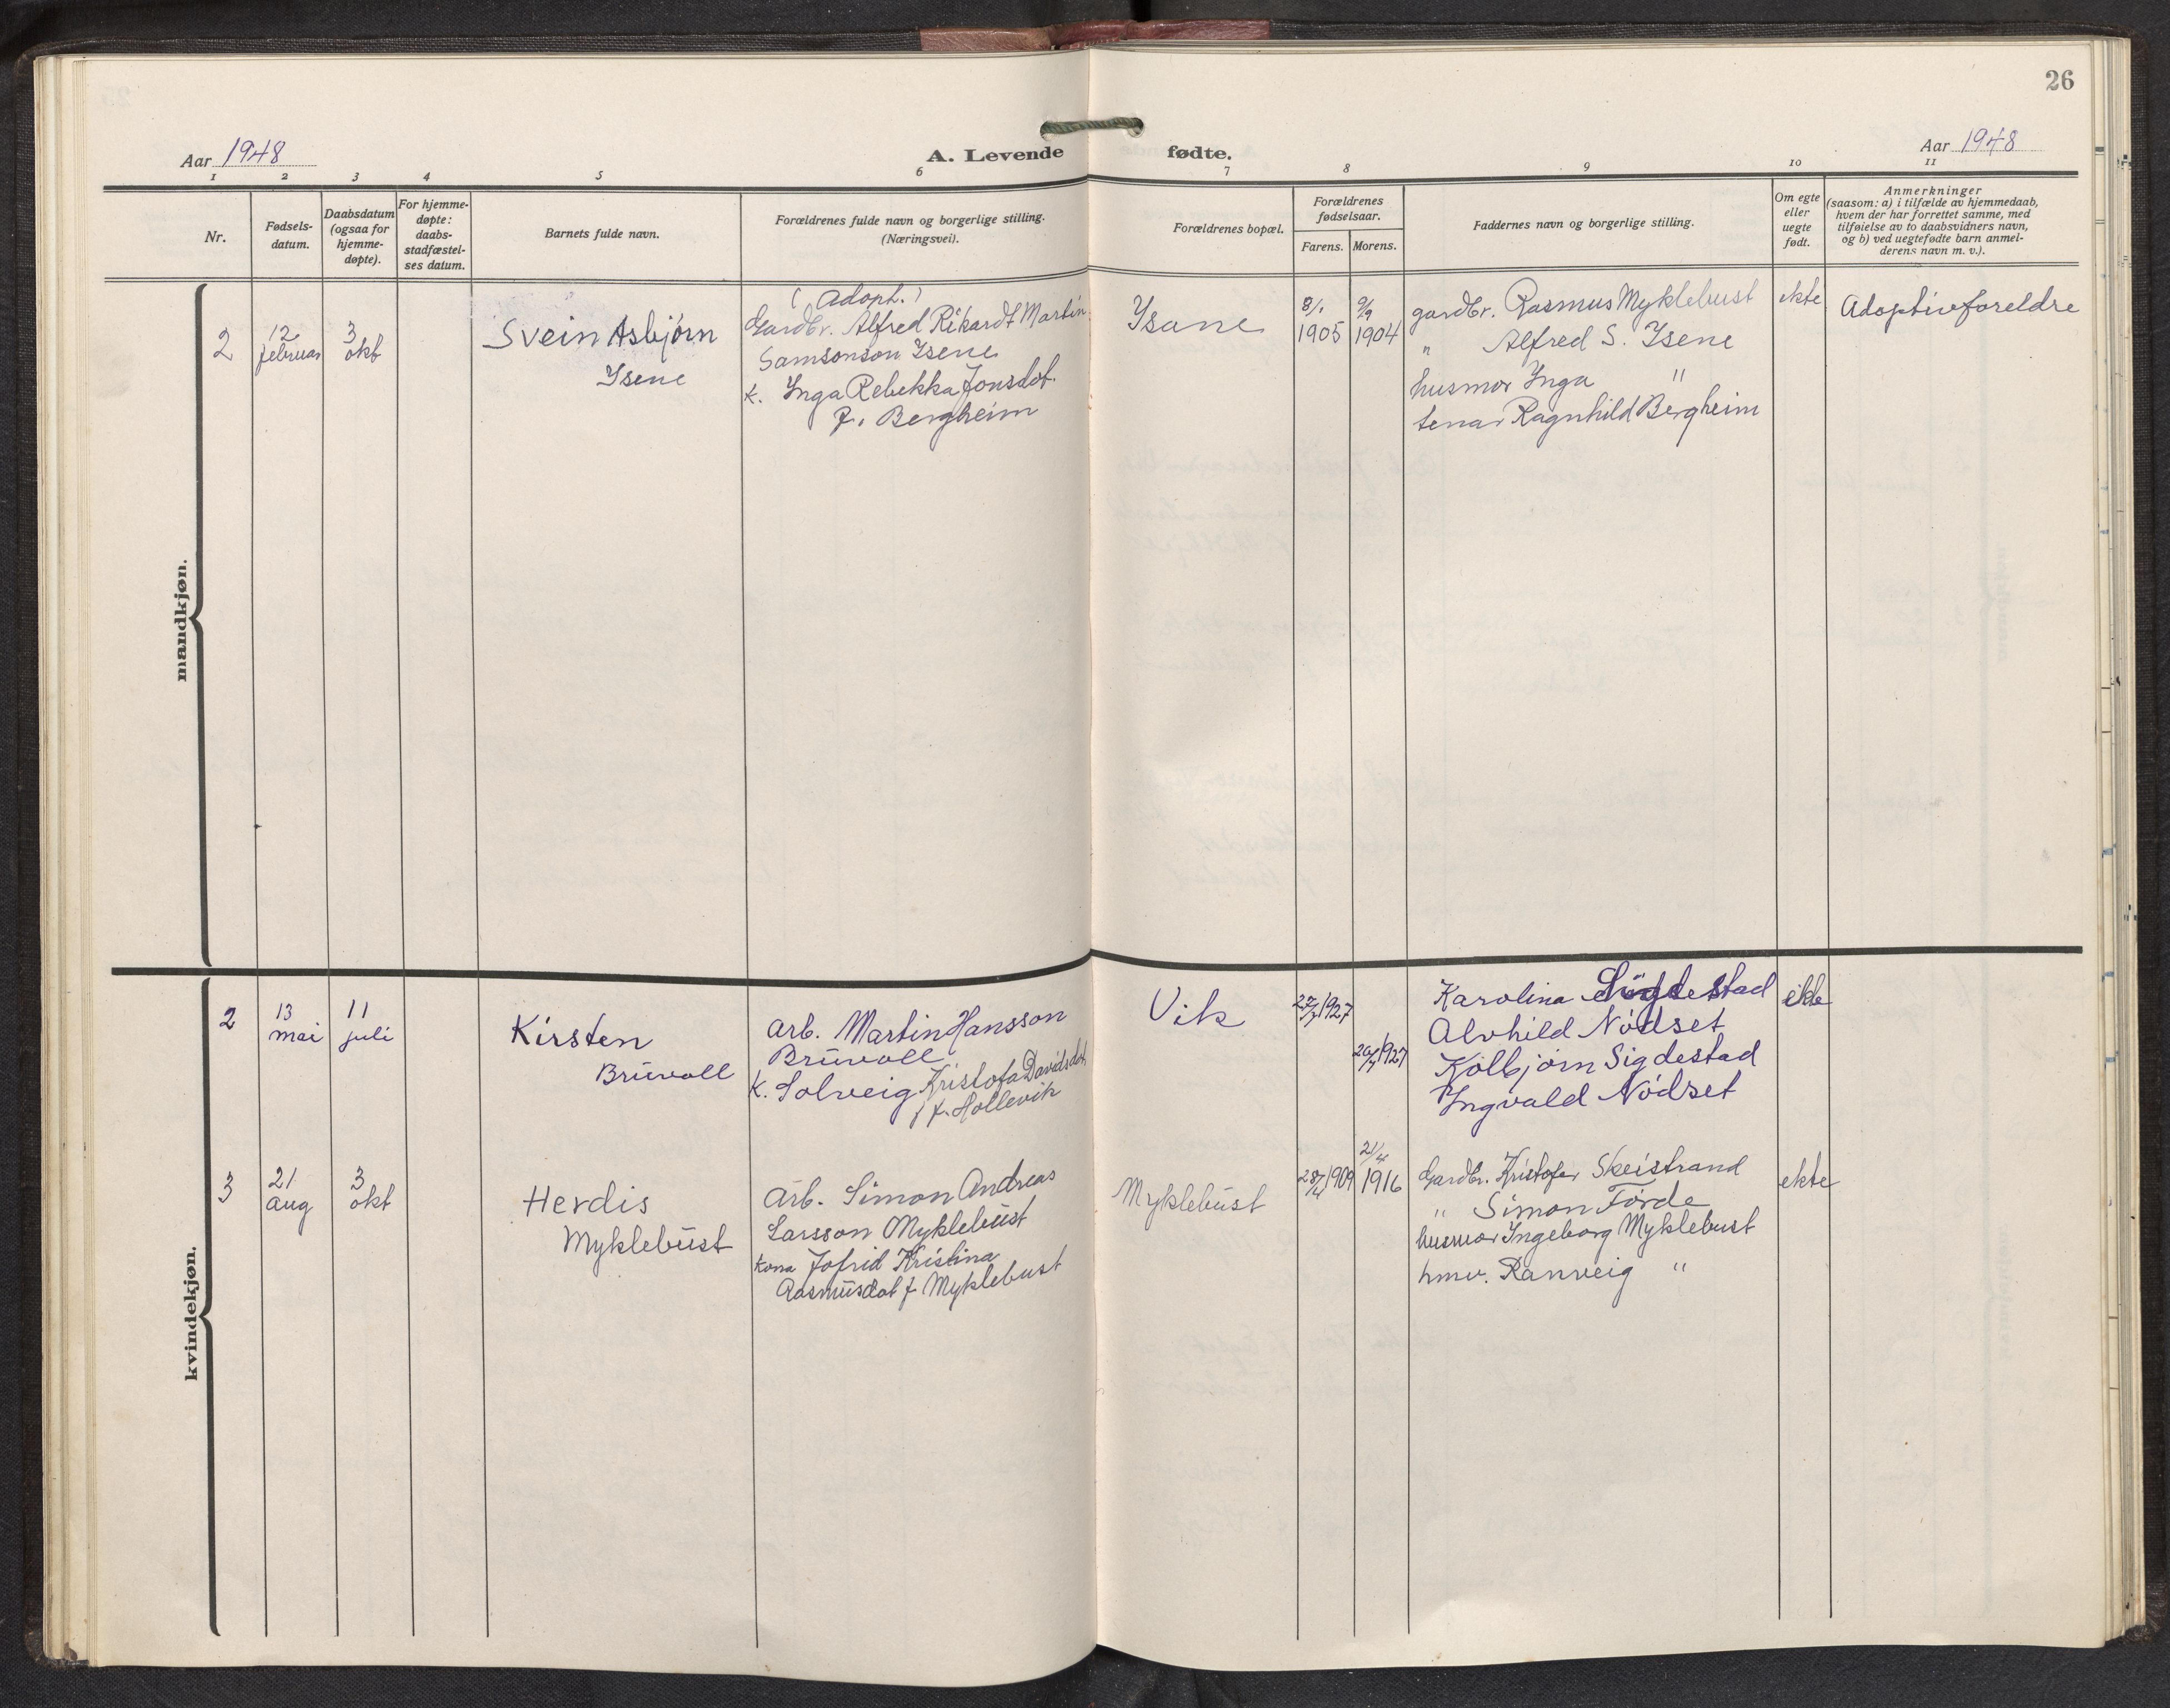 26
Aar 1948
A. Levende fødte.
Aar 1948
1 2 3 4 5 6 7 8 9 10 11
Nr.
Fødsels-
datum.
Daabsdatum
(ogsaa for
hjemme-
døpte).
For hjemme-
døpte:
daabs-
stadfæstel-
ses datum.
Barnets fulde navn.
Forældrenes fulde navn og borgerlige stilling.
(Næringsvei).
Forældrenes bopæl.
Forældrenes
fødselsaar.
Farens. Morens.
Faddernes navn og borgerlige stilling.
Om egte
eller
uegte
født.
Anmerkninger
(saasom: a) i tilfælde av hjemmedaab,
hvem der har forrettet samme, med
tilføielse av to daabsvidners navn,
og b) ved uegtefødte barn anmel-
derens navn m. v.).
mandkjøn.
2
12
februar
3
okt
Svein Asbjørn
Isene
(Adopt.)
Gardbr. Alfred Rikardt Martin
Samsonson Isene
k. Inga Rebekka Jonsdot.
f. Bergheim
Isane
8/1
1905
9/9
1904
gardbr. Rasmus Myklebust
" Alfred S. Isene
husmor Inga "
tenar Ragnhild Bergheim
ekte
Adoptivforeldre
kvindekjøn.
2
13
mai
11
juli
Kirsten
Brüvoll
Arb. Martin Hansson
Brüvoll
k. Solveig Kristofa Davidsdot.
f. Hollevik
Vik
1927
1927
Karolina Sigdestad
Alvhild Nödset
Kolbjørn Sigdestad
Ingvald Nödset
ekte
3
21
aug
3
okt
Herdis
Myklebüst
Arb. Simon Andreas
Larsson Myklebüst
kona Jofrid Kristina
Rasmüsdot f Myklebust
Myklebüst
28/4 1909
21/4
1916
Gardbr. Kristofer Skeistrand
" Simon Förde
husmor Ingeborg Myklebust
hmv. Ranveig "
ekte